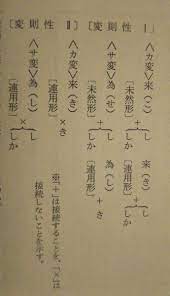 〔変則性 Ⅰ〕
〈カ変〉来(こ)＋し しか 来(き)＋し しか
〔未然形〕 〔連用形〕
〈サ変〉為(せ)＋し しか 為(し)＋き
〔未然形〕 〔連用形〕
〔変則性 Ⅱ〕
〈カ変〉来(き)×き
〔連用形〕
〈サ変〉為(し)×し しか
〔連用形〕
※「＋」は接続することを、「×」は
接続しないことを示す。